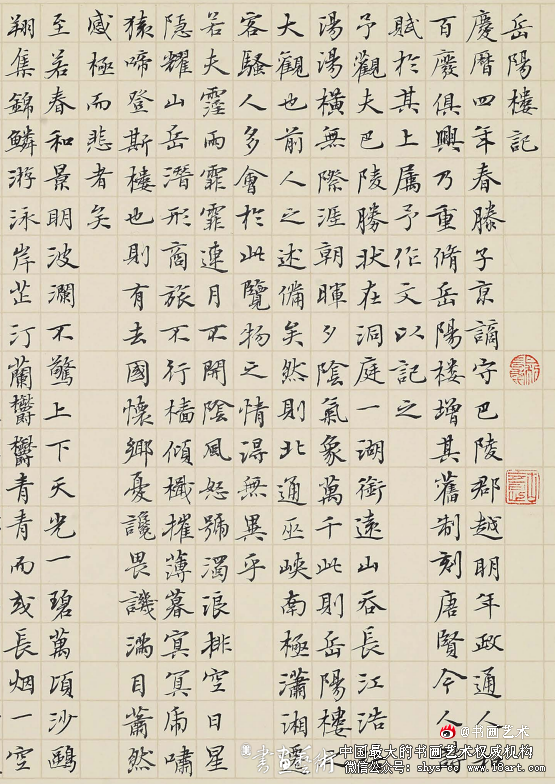 岳陽楼記
慶曆四年春滕子京謫守巴陵郡越明年政通人和
百廢俱興乃重脩岳陽楼增其舊制刻唐賢今人
賦於其上屬予作文以記之
予觀夫巴陵勝狀在洞庭一湖銜遠山吞長江浩
湯湯橫無際涯朝暉夕陰氣象萬千此則岳陽楼
大觀也前人之述備矣然則北通巫峽南極瀟湘遷
客騷人多會於此覽物之情得無異乎
若夫霪雨霏霏連月不開陰風怒號濁浪排空日星
隱耀山岳潛形商旅不行檣傾檝摧薄暮冥冥虎嘯
猿啼登斯楼也則有去國懷鄉憂讒畏譏滿目蕭然
感極而悲者矣
至若春和景明波瀾不驚上下天光一碧萬頃沙鷗
翔集錦鱗游泳岸芷汀蘭欝欝青青而或長烟一空
@书画艺术
書画藝術
中国最大的书画艺术权威机构
微信公众号: shys-80 网址: www.18art.com